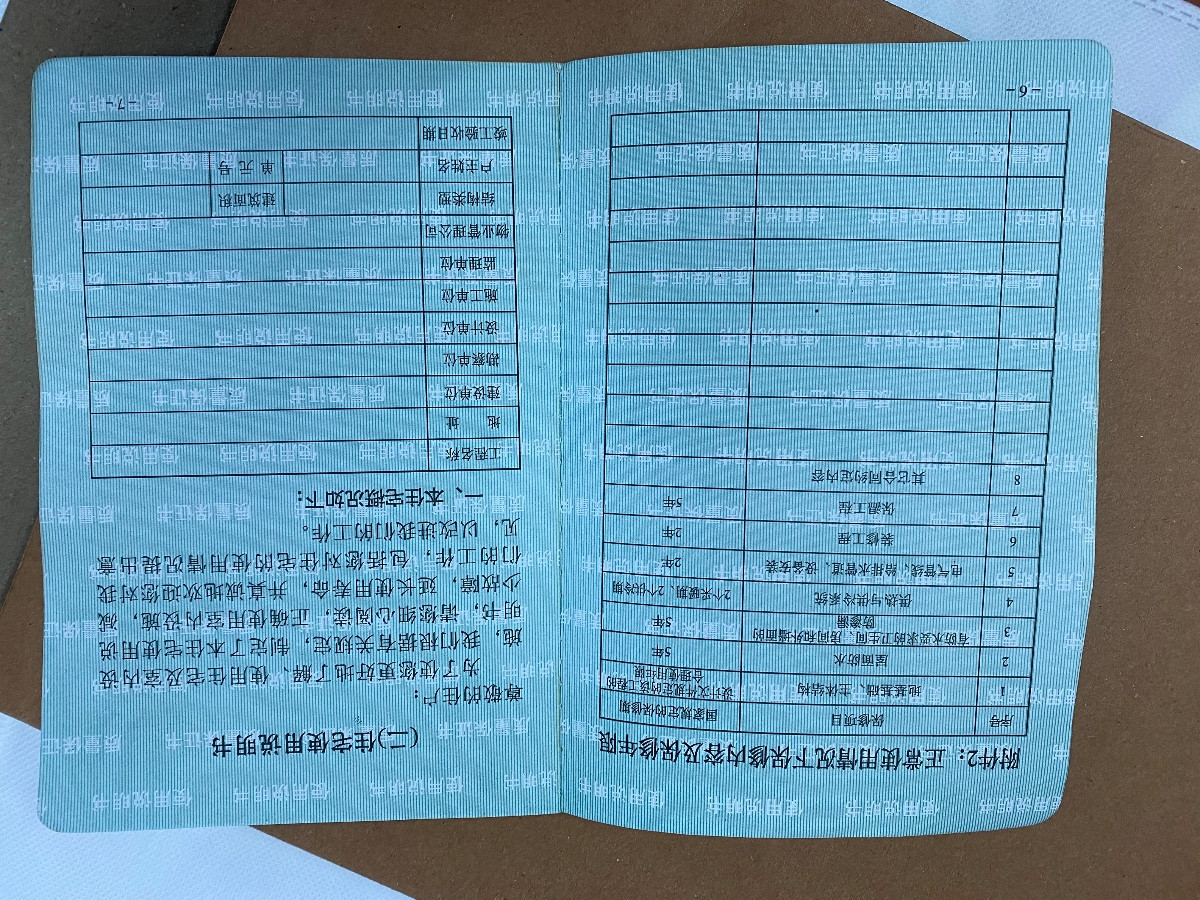 附件2：正常使用情况下保修内容及保修年限
序号 保修项目 国家规定的保修期
1 地基基础、主体结构 设计文件规定的该工程的
合理使用年限
2 屋面防水 5年
3 有防水要求的卫生间、房间和外墙面的
防渗漏 5年
4 供热与供冷系统 2个采暖期、2个供冷期
5 电气管线、给排水管道、设备安装 2年
6 装修工程 2年
7 保温工程 5年
8 其它合同约定内容
-6-
(二)住宅使用说明书
尊敬的住户：
为了使您更好地了解、使用住宅及室内设
施，我们根据有关规定，制定了本住宅使用说
明书，请您细心阅读，正确使用室内设施，减
少故障，延长使用寿命，并真诚地欢迎您对我
们的工作，包括您对住宅的使用情况提出意
见，以改进我们的工作。
一、本住宅概况如下：
工程名称
地 址
建设单位
勘察单位
设计单位
施工单位
监理单位
物业管理公司
结构类型 建筑面积
户主姓名 单元号
竣工验收日期
-7-